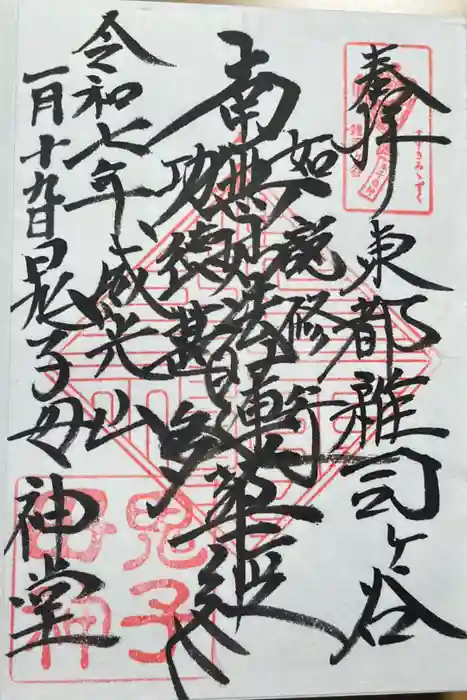 奉拝
東都雑司ケ谷
如説修行
南無妙法蓮華経
功徳甚多
令和七年
威光山
一月十九日
鬼子母神堂
すゝきみゝずく
鬼子母神